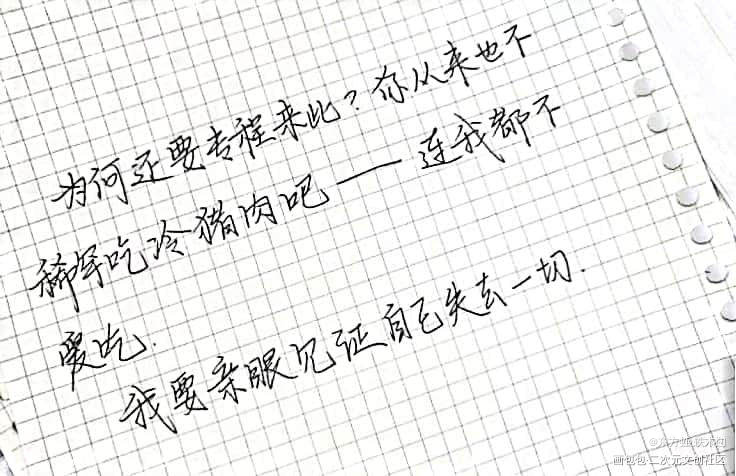 为何还要专程来此?你从来也不
稀罕吃冷猪肉吧——连我都不
爱吃.
我要亲眼见证自己失去一切.
画包包·二次元文创社区